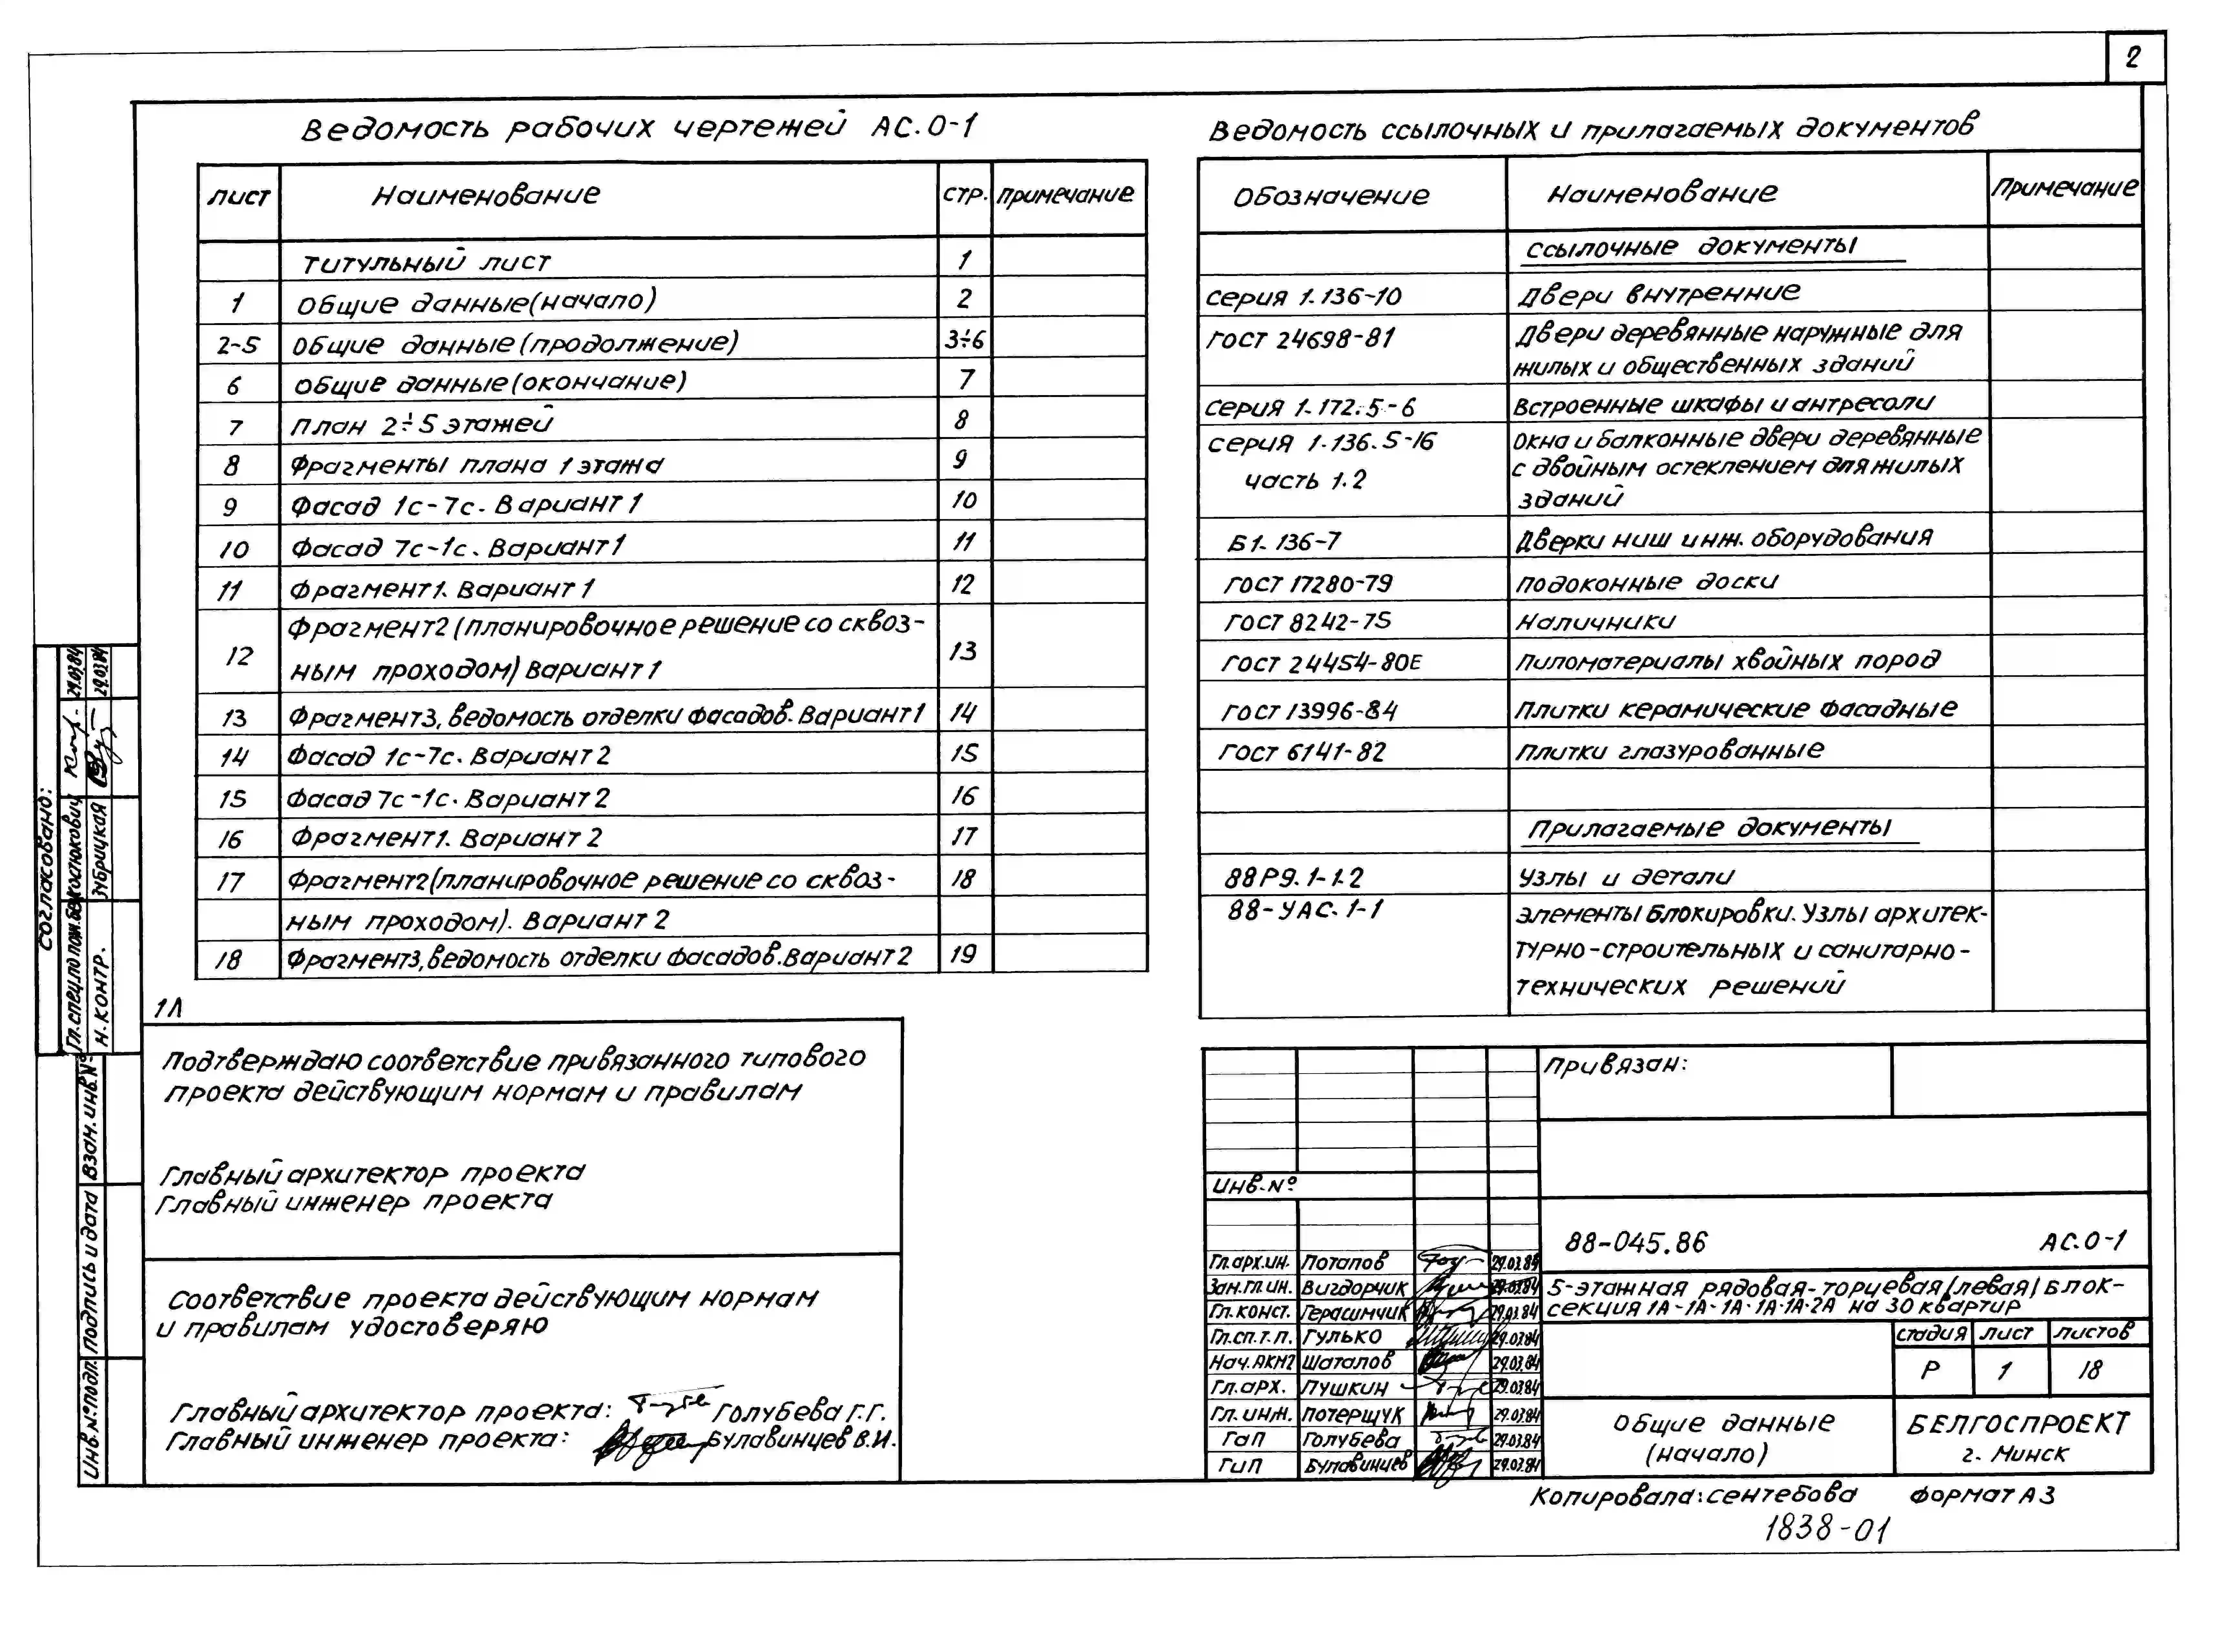 2
Ведомость рабочих чертежей АС.0-1
лист Наименование стр. примечание
Титульный лист 1
1 Общие данные (начало) 2
2-5 Общие данные (продолжение) 3÷6
6 Общие данные (окончание) 7
7 План 2÷5 этажей 8
8 Фрагменты плана 1 этажа 9
9 Фасад 1с-7с. Вариант 1 10
10 Фасад 7с-1с. Вариант 1 11
11 Фрагмент 1. Вариант 1 12
12 Фрагмент 2 (планировочное решение со сквоз-
ным проходом) Вариант 1 13
13 Фрагмент 3, ведомость отделки фасадов. Вариант 1 14
14 Фасад 1с-7с. Вариант 2 15
15 Фасад 7с-1с. Вариант 2 16
16 Фрагмент 1. Вариант 2 17
17 Фрагмент 2 (планировочное решение со сквоз- 18
ным проходом). Вариант 2
18 Фрагмент 3, ведомость отделки фасадов. Вариант 2 19
Ведомость ссылочных и прилагаемых документов
Обозначение Наименование Примечание
Ссылочные документы
Серия 1.136-10 Двери внутренние
ГОСТ 24698-81 Двери деревянные наружные для
жилых и общественных зданий
Серия 1.172.5-6 Встроенные шкафы и антресоли
Серия 1.136.5-16 Окна и балконные двери деревянные
часть 1.2 с двойным остеклением для жилых
зданий
Б1.136-7 Дверки ниш инж. оборудования
ГОСТ 17280-79 Подоконные доски
ГОСТ 8242-75 Наличники
ГОСТ 24454-80Е Пиломатериалы хвойных пород
ГОСТ 13996-84 Плитки керамические фасадные
ГОСТ 6141-82 Плитки глазурованные
Прилагаемые документы
88Р9.1-1.2 Узлы и детали
88-УАС.1-1 Элементы блокировки. Узлы архитек-
турно-строительных и санитарно-
технических решений
1Л
Подтверждаю соответствие привязанного типового
проекта действующим нормам и правилам
Главный архитектор проекта
Главный инженер проекта
Соответствие проекта действующим нормам
и правилам удостоверяю
Главный архитектор проекта: Голубева Г.Г.
Главный инженер проекта: Булавинцев В.И.
Согласовано:
Гл. спец. по пож. без. Костюкович 29.03.84
Н. контр. Зубрицкая 29.03.84
Взам. инв. №
Подпись и дата
Инв. № подл.
Привязан:
Инв. №
88-045.86 АС.0-1
Гл. арх. ин. Потапов 29.03.85
Зам. гл. ин. Выгдорчик 29.03.84
Гл. конст. Герасимчик 29.03.84
Гл. сп. т.п. Гулько 29.03.84
Нач. АКМ2 Шаталов 29.03.84
Гл. арх. Пушкин 29.03.84
Гл. инж. Потерщук 29.03.84
ГаП Голубева 29.03.84
ГиП Булавинцев 29.03.84
5-этажная рядовая-торцевая (левая) блок-
секция 1А-1А-1А-1А-1А-2А на 30 квартир
стадия лист листов
Р 1 18
Общие данные
(начало)
БЕЛГОСПРОЕКТ
г. Минск
Копировала: Сентебова Формат А3
1838-01